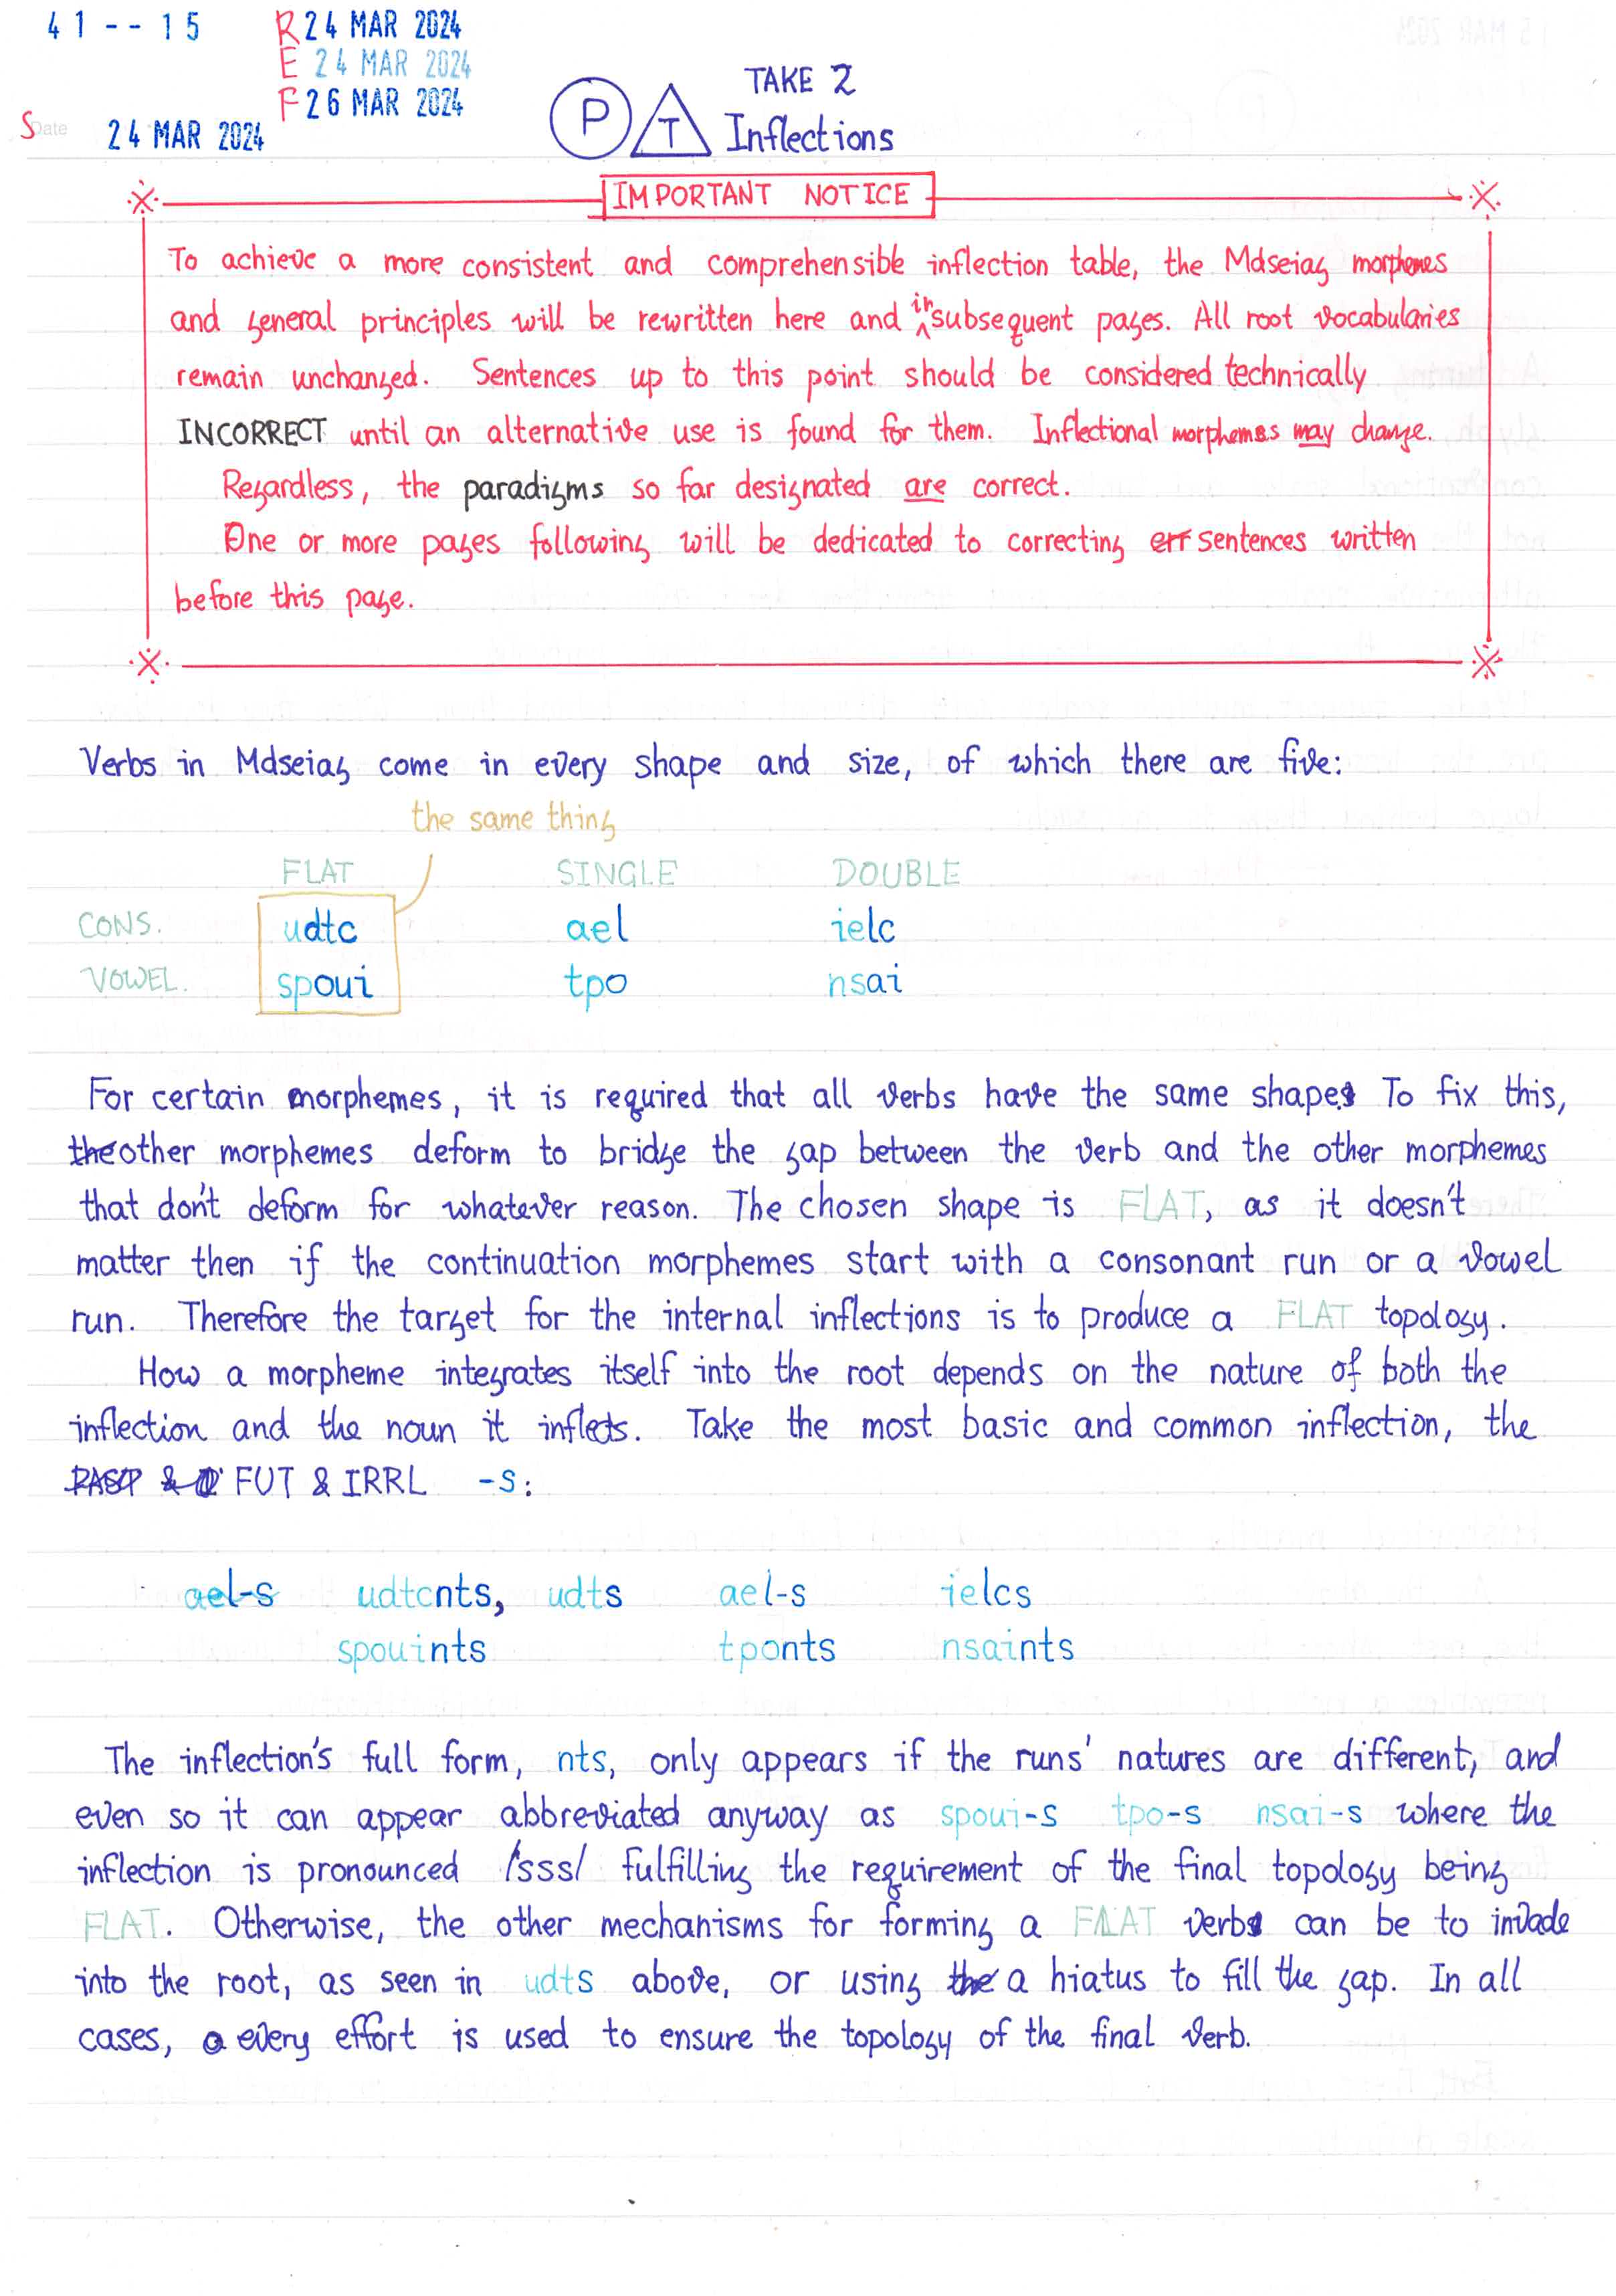 41--15
R 24 MAR 2024
E 24 MAR 2024
F 26 MAR 2024
S Date 24 MAR 2024
P T TAKE 2
Inflections
IMPORTANT NOTICE
To achieve a more consistent and comprehensible inflection table, the Mdseiag morphemes
and general principles will be rewritten here and in subsequent pages. All root vocabularies
remain unchanged. Sentences up to this point should be considered technically
INCORRECT until an alternative use is found for them. Inflectional morphemes may change.
Regardless, the paradigms so far designated are correct.
One or more pages following will be dedicated to correcting err sentences written
before this page.
Verbs in Mdseiag come in every shape and size, of which there are five:
the same thing
FLAT SINGLE DOUBLE
CONS. udtc ael ielc
VOWEL. spoui tpo nsai
For certain morphemes, it is required that all verbs have the same shape. To fix this,
the other morphemes deform to bridge the gap between the verb and the other morphemes
that don't deform for whatever reason. The chosen shape is FLAT, as it doesn't
matter then if the continuation morphemes start with a consonant run or a vowel
run. Therefore the target for the internal inflections is to produce a FLAT topology.
How a morpheme integrates itself into the root depends on the nature of both the
inflection and the noun it inflects. Take the most basic and common inflection, the
FUT & IRRL -s:
ael-s udtcnts, udts ael-s ielcs
spouints tponts nsaints
The inflection's full form, nts, only appears if the runs' natures are different, and
even so it can appear abbreviated anyway as spoui-s tpo-s nsai-s where the
inflection is pronounced /sss/ fulfilling the requirement of the final topology being
FLAT. Otherwise, the other mechanisms for forming a FLAT verb can be to invade
into the root, as seen in udts above, or using the a hiatus to fill the gap. In all
cases, every effort is used to ensure the topology of the final verb.